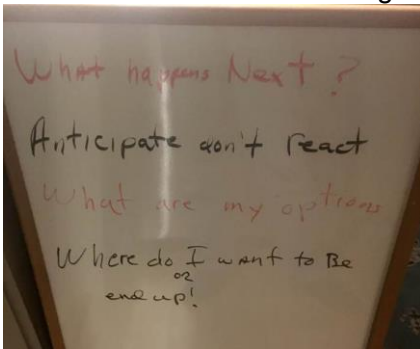 What happens Next?
Anticipate don't react
What are my options
Where do I want to Be
or
end up!